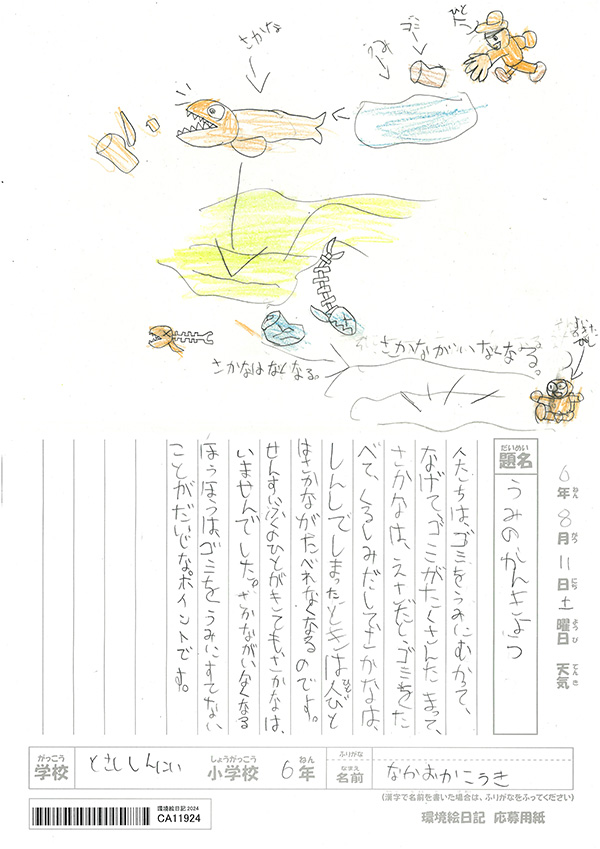 ひと
ゴミ
うみ
さかな
さかながいなくなる。
さかなはなくなる。
6年 8月 11日 土曜日 天気
ねん がつ にち ようび てんき
だいめい
題名
うみのかんきょう
人たちは、ゴミをうみにむかって、
なげて、ゴミがたくさんたまって、
さかなは、えさだと、ゴミをた
べて、くるしみだしてさかなは、
しんでしまったときは人びと
はさかながたべれなくなるのです。
せんすいふくのひとがきてもさかなは、
いませんでした。さかながいなくなる
ほうほうは、ゴミをうみにすてない
ことがだいじなポイントです。
がっこう
学校
しょうがっこう
小学校 6年
ねん
ふりがな
なまえ
名前 なかおかこうき
(漢字で名前を書いた場合は、ふりがなをふってください)
環境絵日記2024
CA11924
環境絵日記 応募用紙